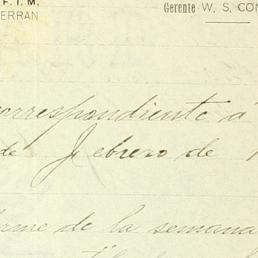 F. I. M.
ERRAN
Gerente W, S, CON
correspondiente á
de Febrero de 1
rme de la semana